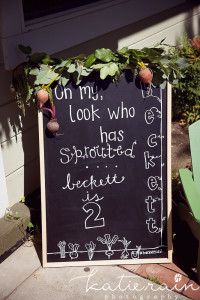 Oh my,
look who
has
"sprouted"
....
beckett
is
2
beckett
katie rain
photography